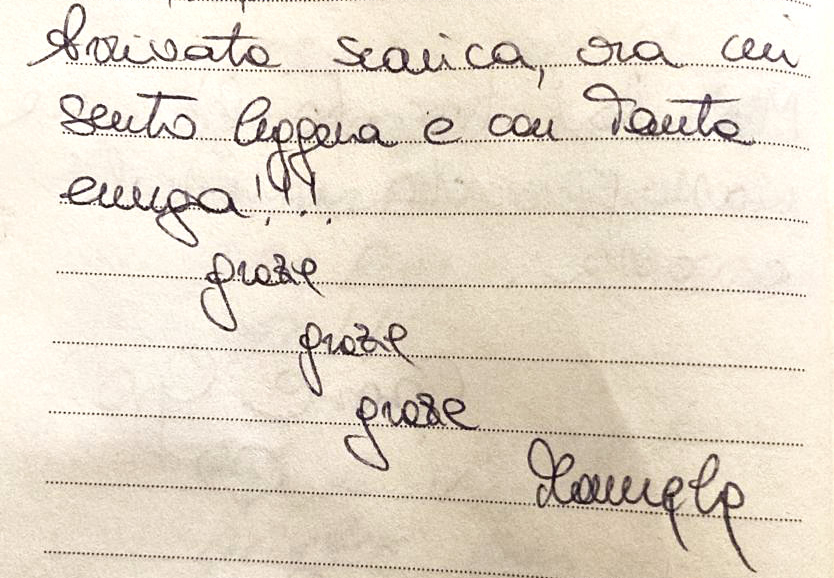 Arrivata scarica, ora mi
sento leggera e con tanta
energia!!!
grazie
grazie
grazie